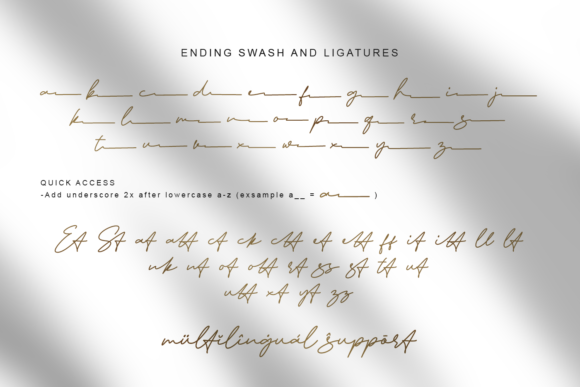 ENDING SWASH AND LIGATURES
a b c d e f g h i j
k l m n o p q r s
t u v x w x y z
QUICK ACCESS
-Add underscore 2x after lowercase a-z (exsample a__ = a )
Et St at att ct ck ctt et ett ff it itt ll lt
nk nt ot ott rt ss st tt ut
utt xt yt zz
mültĭlîngúál żuppōrt